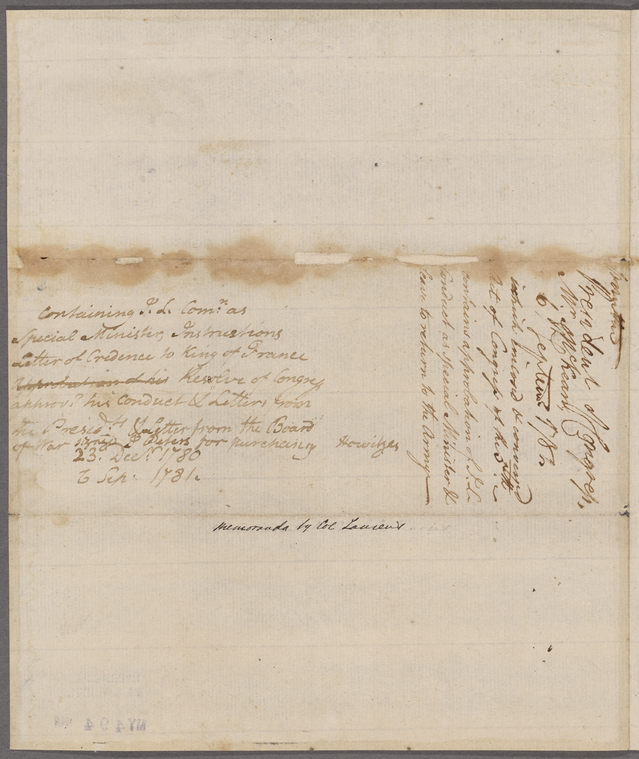 Containing J. L. Comn as
Special Minister, Instructions
Letter of Credence to King of France
Approbation of his Resolve of Congress
approvg his Conduct & Letters from
the Presedt & Letter from the Board
of War R. Peters for purchasing Howitzes
23. Decr. 1780
6 Sep. 1781.
Memoranda by Col Laurens
President of Congress,
Mr McKean
6. Septem 1781
which inscered & conveved
Act of Congress of the 5th
contains approbation of J. L.
Conduct as Special Minister &
leave to return to the Army
NY494